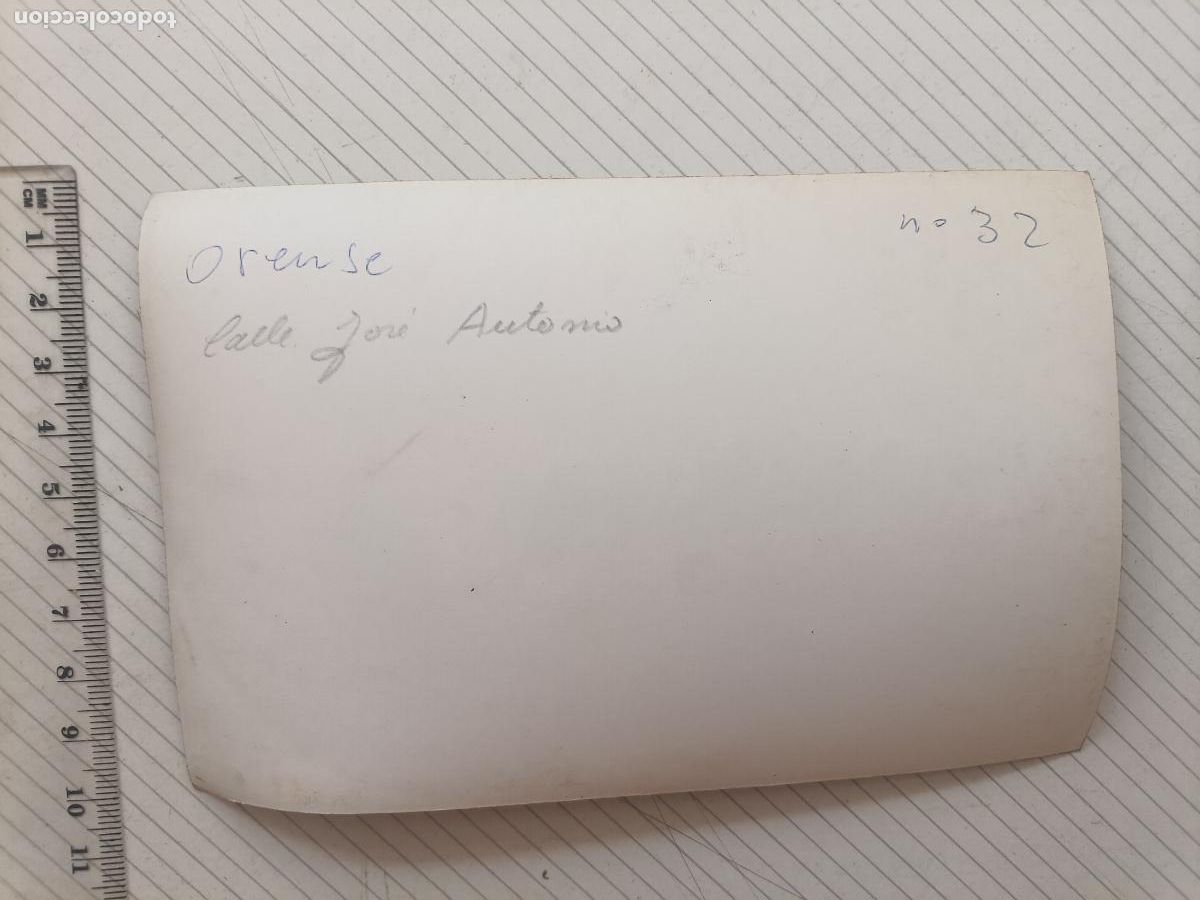 todocoleccion
MM
CM
1
2
3
4
5
6
7
8
9
10
11
Orense
nº 32
Calle José Antonio